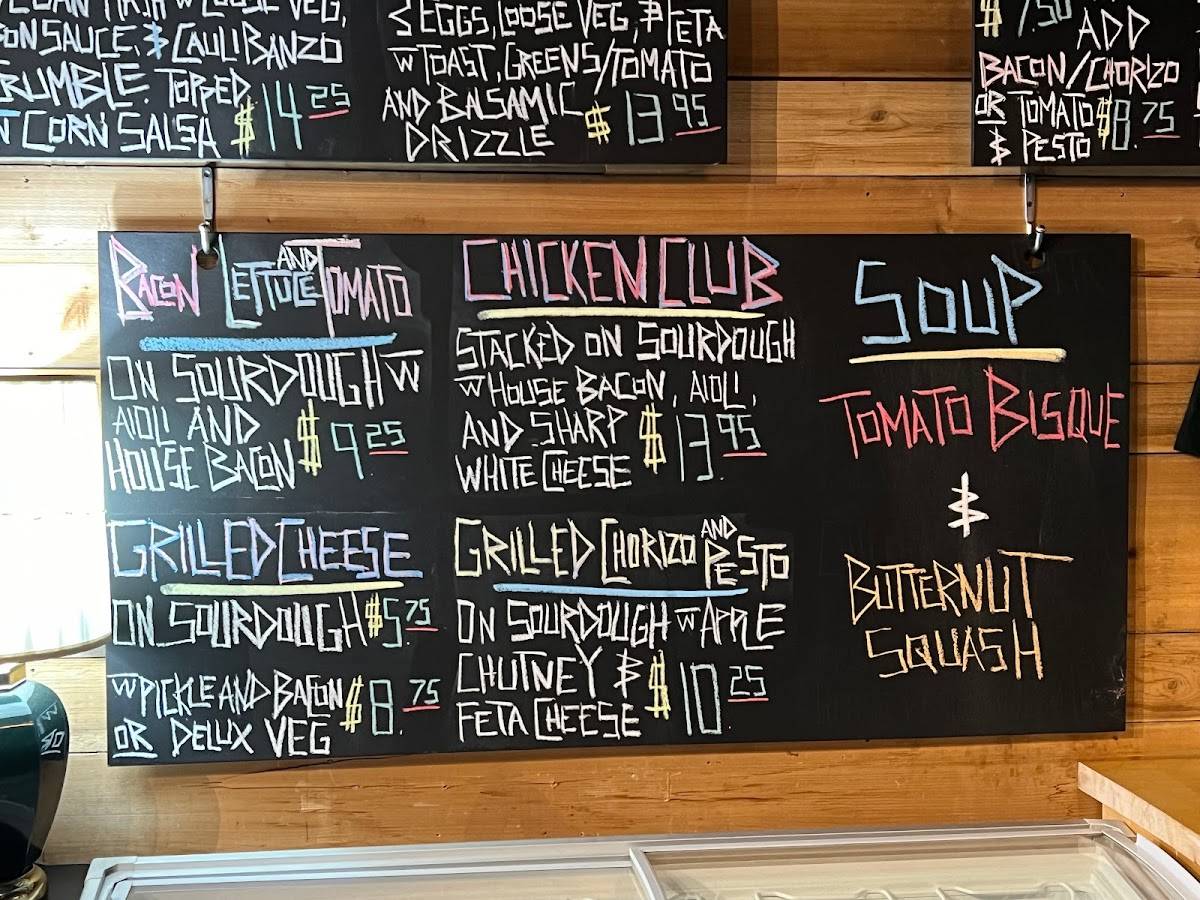 LOOSE VEG,
SAUCE, & CAULIBANZO
CRUMBLE. TOPPED
CORN SALSA $14.25
EGGS, LOOSE VEG, & FETA
W TOAST, GREENS/TOMATO
AND BALSAMIC
DRIZZLE $13.95
$ /.50
ADD
BACON/CHORIZO
OR TOMATO
& PESTO $8.75
BACON LETTUCE AND TOMATO
ON SOURDOUGH W
AIOLI AND
HOUSE BACON $9.25
CHICKEN CLUB
STACKED ON SOURDOUGH
W HOUSE BACON, AIOLI,
AND SHARP
WHITE CHEESE $13.95
GRILLED CHEESE
ON SOURDOUGH $5.75
W PICKLE AND BACON
OR DELUX VEG $8.75
GRILLED CHORIZO AND PESTO
ON SOURDOUGH W APPLE
CHUTNEY &
FETA CHEESE $10.25
SOUP
TOMATO BISQUE
&
BUTTERNUT
SQUASH